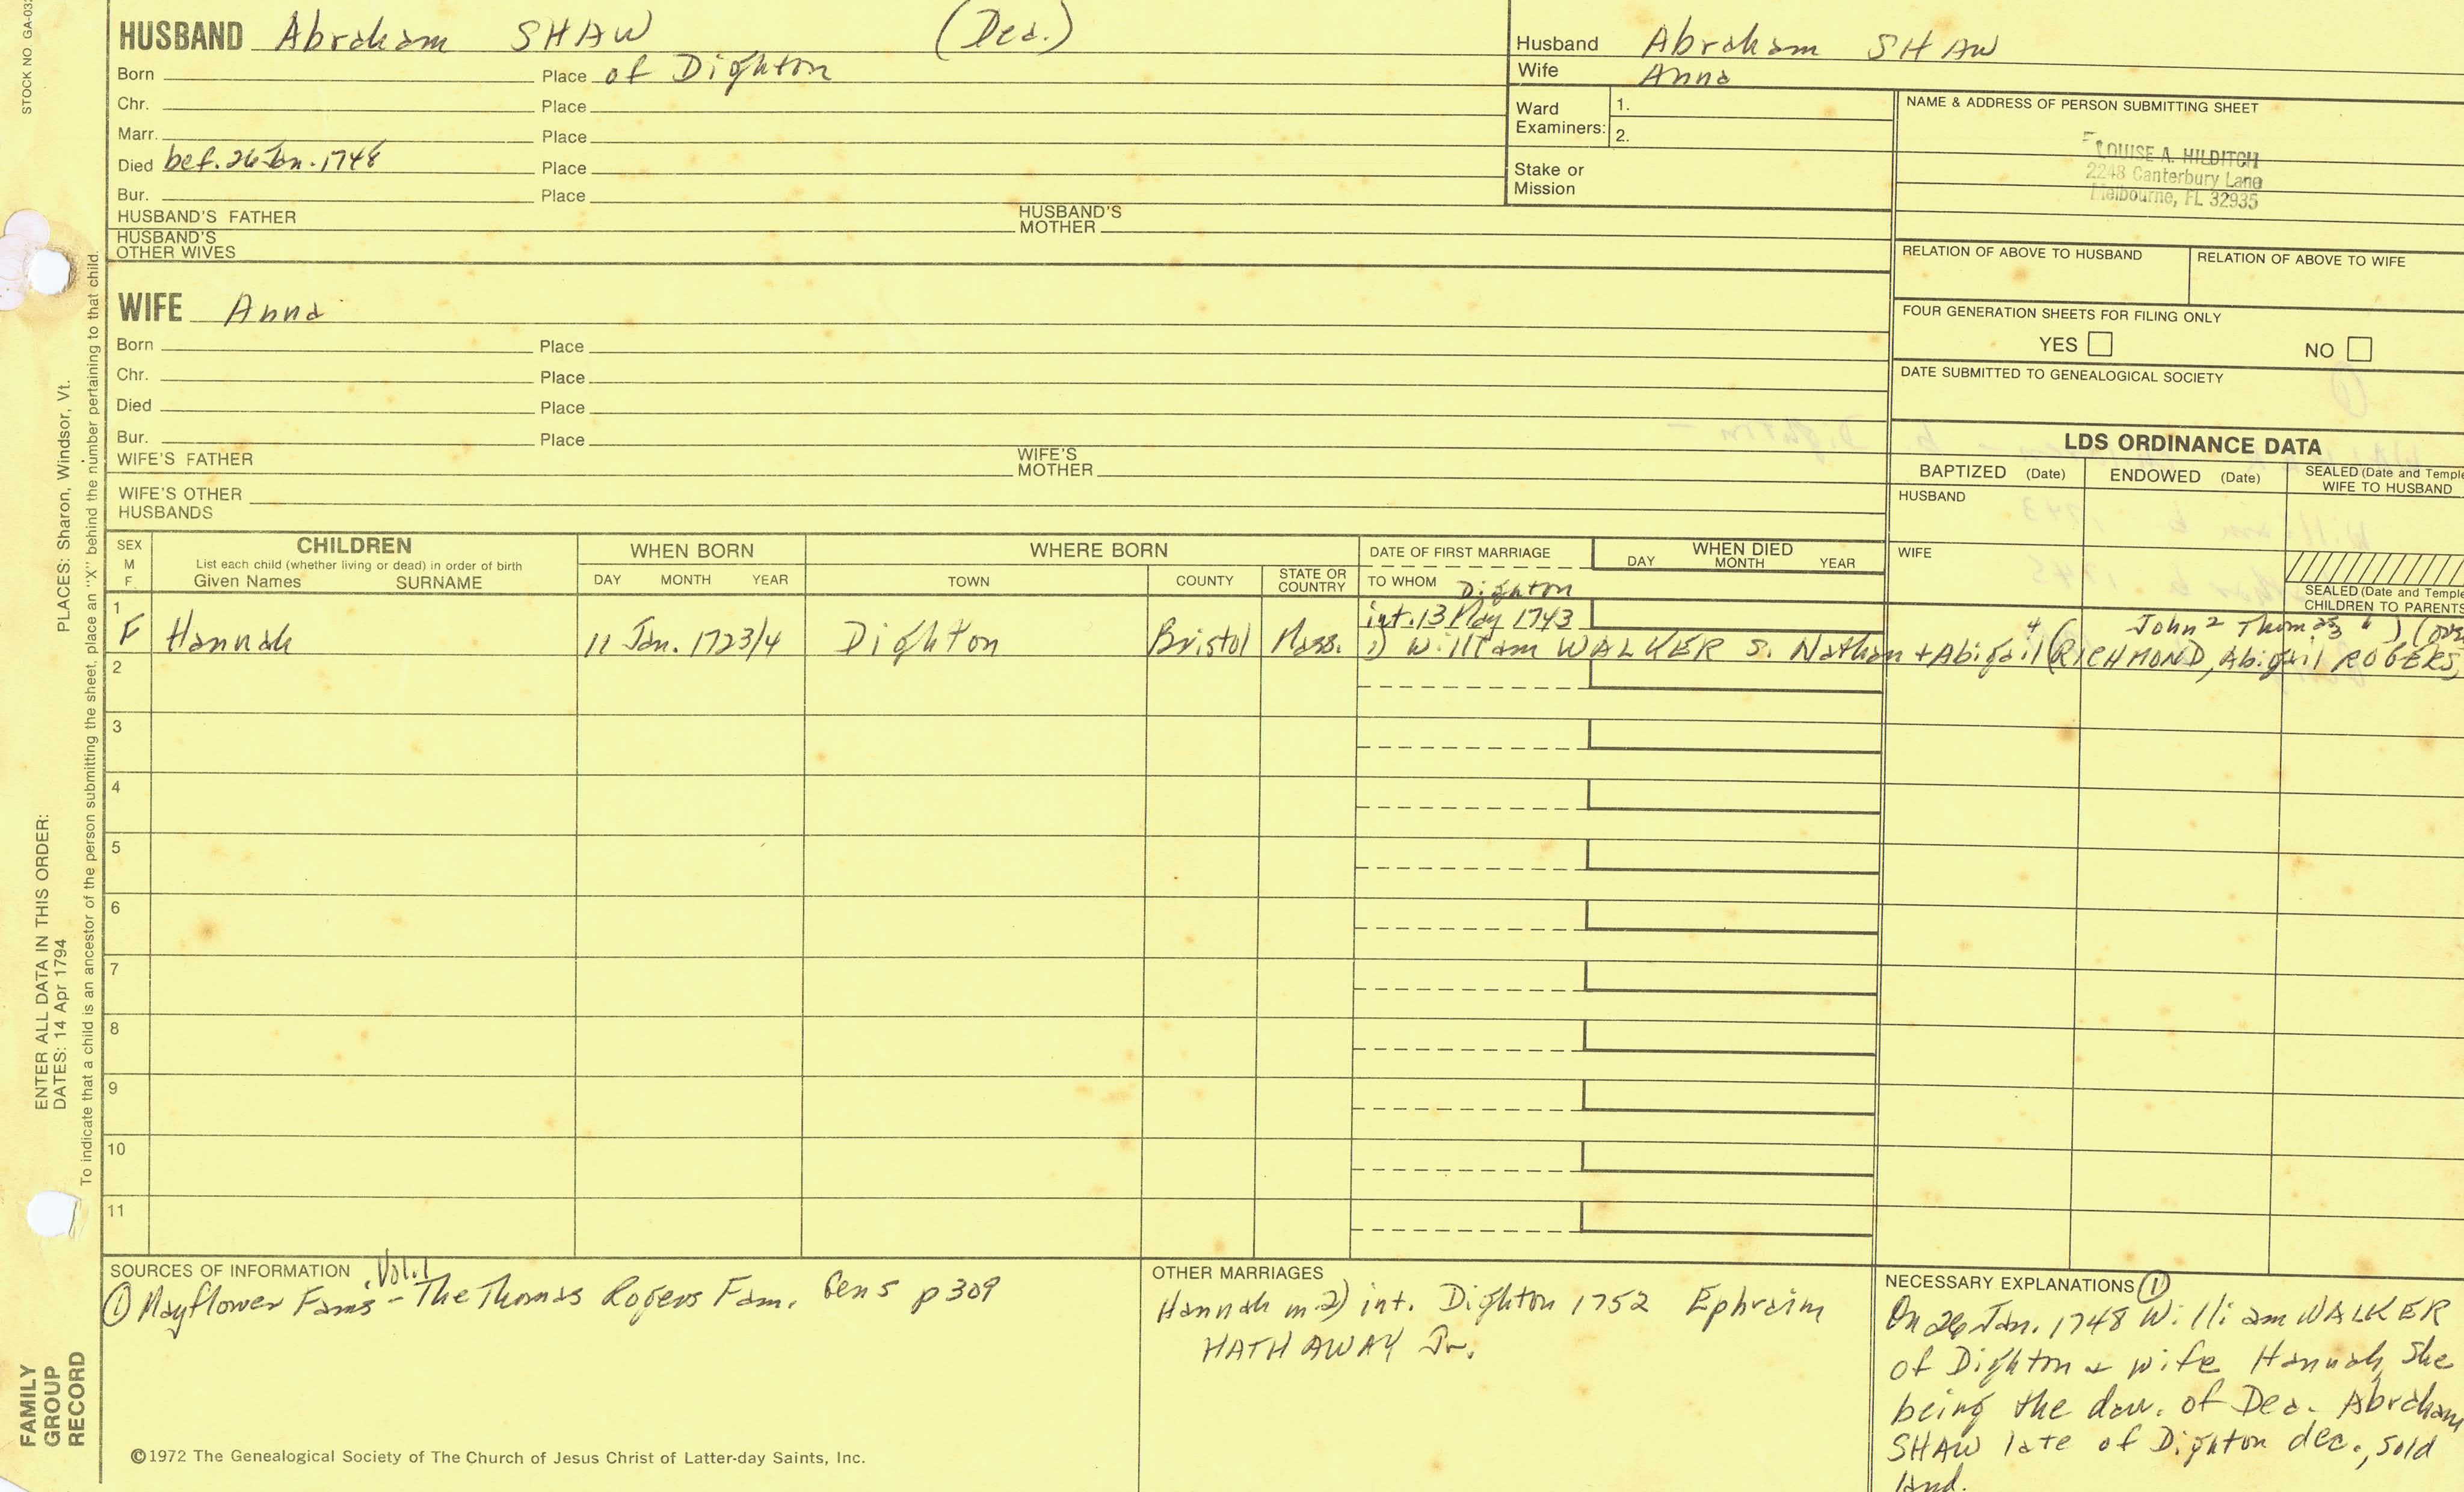 STOCK NO GA-03
HUSBAND Abraham SHAW (Dea.)
Born Place of Dighton
Chr. Place
Marr. Place
Died bef. 26 Jan. 1748 Place
Bur. Place
HUSBAND'S FATHER HUSBAND'S MOTHER
HUSBAND'S OTHER WIVES
Husband Abraham SHAW
Wife Anna
Ward Examiners: 1.
2.
Stake or Mission
NAME & ADDRESS OF PERSON SUBMITTING SHEET
LOUISE A. HILDITCH
2248 Canterbury Lane
Melbourne, FL 32935
RELATION OF ABOVE TO HUSBAND RELATION OF ABOVE TO WIFE
FOUR GENERATION SHEETS FOR FILING ONLY
YES NO
DATE SUBMITTED TO GENEALOGICAL SOCIETY
WIFE Anna
Born Place
Chr. Place
Died Place
Bur. Place
WIFE'S FATHER WIFE'S MOTHER
WIFE'S OTHER HUSBANDS
LDS ORDINANCE DATA
BAPTIZED (Date) ENDOWED (Date) SEALED (Date and Temple
WIFE TO HUSBAND
HUSBAND
WIFE
SEALED (Date and Temple
CHILDREN TO PARENTS
SEX M F
CHILDREN
List each child (whether living or dead) in order of birth
Given Names SURNAME
WHEN BORN
DAY MONTH YEAR
WHERE BORN
TOWN COUNTY STATE OR COUNTRY
DATE OF FIRST MARRIAGE
TO WHOM
WHEN DIED
DAY MONTH YEAR
Dighton
1 int. 13 May 1743
John 2 Thomas
F Hannah 11 Jan. 1723/4 Dighton Bristol Mass. 1) William WALKER s. Nathan + Abigail 4 (RICHMOND, Abigail ROGERS,
2
3
4
5
6
7
8
9
10
11
SOURCES OF INFORMATION
① Mayflower Fam's, Vol. 1 - The Thomas Rogers Fam. Gen 5 p 309
OTHER MARRIAGES
Hannah m 2) int. Dighton 1752 Ephraim
HATHAWAY Jr.
NECESSARY EXPLANATIONS ①
On 26 Jan. 1748 William WALKER
of Dighton & wife Hannah, she
being the dau. of Dea. Abraham
SHAW late of Dighton dec., sold
land.
©1972 The Genealogical Society of The Church of Jesus Christ of Latter-day Saints, Inc.
FAMILY
GROUP
RECORD
ENTER ALL DATA IN THIS ORDER:
DATES: 14 Apr 1794
PLACES: Sharon, Windsor, Vt.
To indicate that a child is an ancestor of the person submitting the sheet, place an "X" behind the number pertaining to that child.